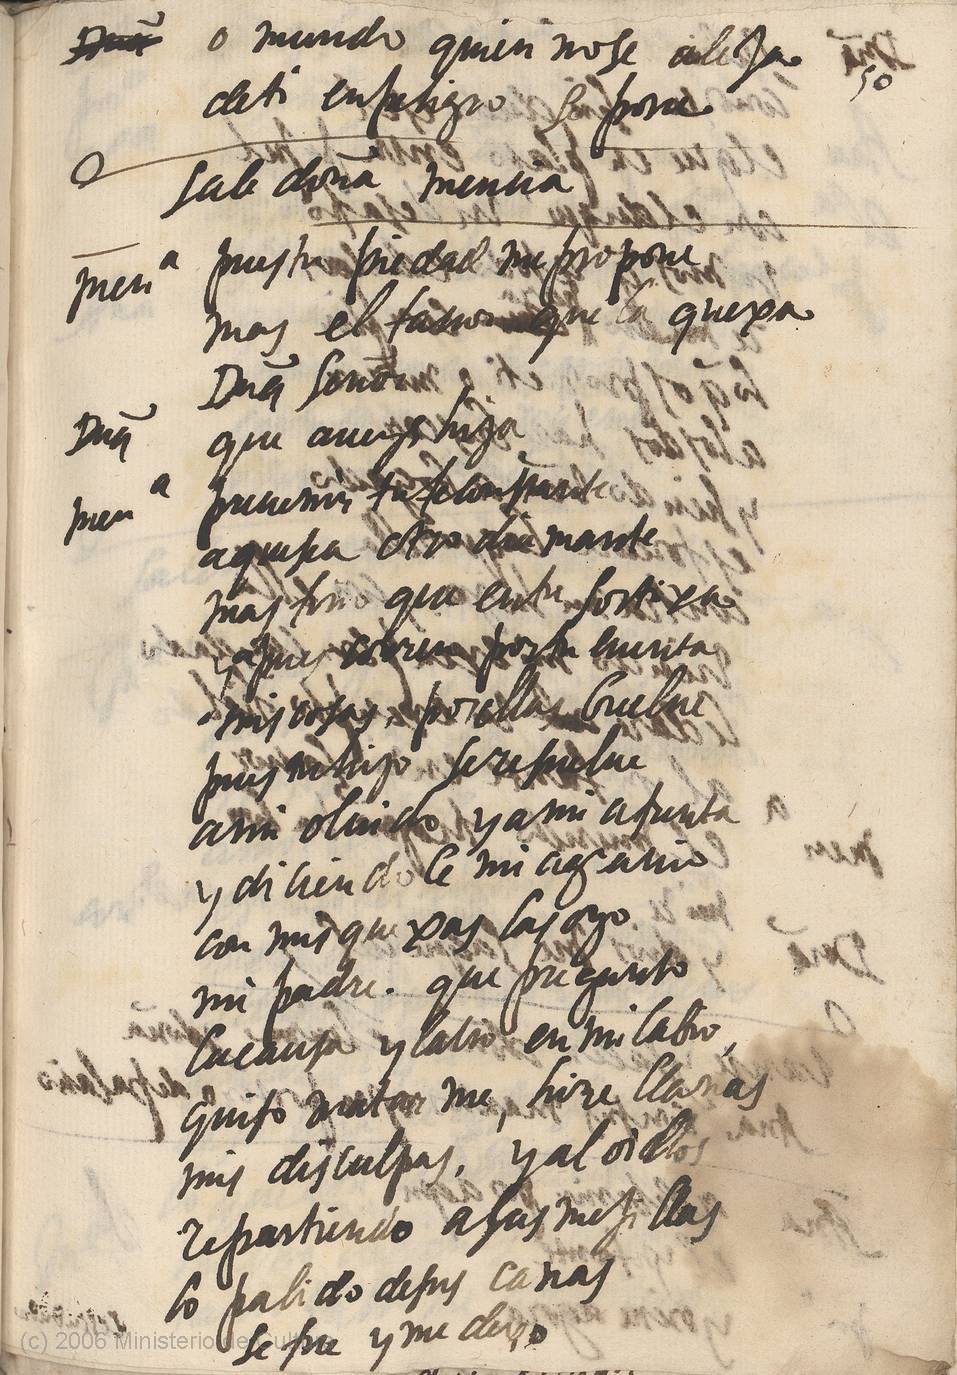 o mundo quien nose alexa
50
deti enpeligro se pone
sale doña mencia
menª vuestra piedad me propone
mas el que la quexa
Dnª señora
Dnª que aueys hija
menª
aquesa otro diamante
mas fino que entre sortixa
ya pues corren por tu cuenta
mis cosas, por ellas buelue
pues tu hijo se resuelue
a mi oluido y a mi afrenta
y diciendole mi agrauio
con mis quexas las oyo
mi padre. que pregunto
la causa y labio en mi labio,
quiso matarme, hize llanas
mis disculpas, y al oillos
repartiendo a sus mexillas
lo palido de sus canas
se fue y me dexo
(c) 2006 Ministerio de Cultura